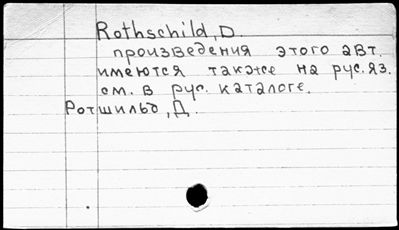 Rothschild, D.
произведения этого авт.
имеются также на рус. яз.
см. в рус. каталоге.
Ротшильд, Д.